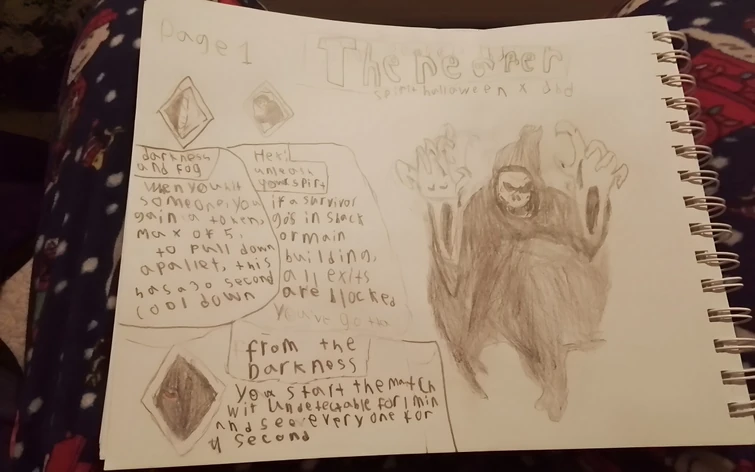 Page 1
The
spirit halloween x dbd
darkness
and fog
When you hit
someone, you
gain a token,
max of 5.
to pull down
a pallet, this
has a 30 second
cool down
Hex:
unleash
your spirt
if a survivor
go's in shack
or main
building,
all exits
are blocked
You've got
from the
Darkness
you start the match
wit undetectable for 1 min
and see every one for
4 second